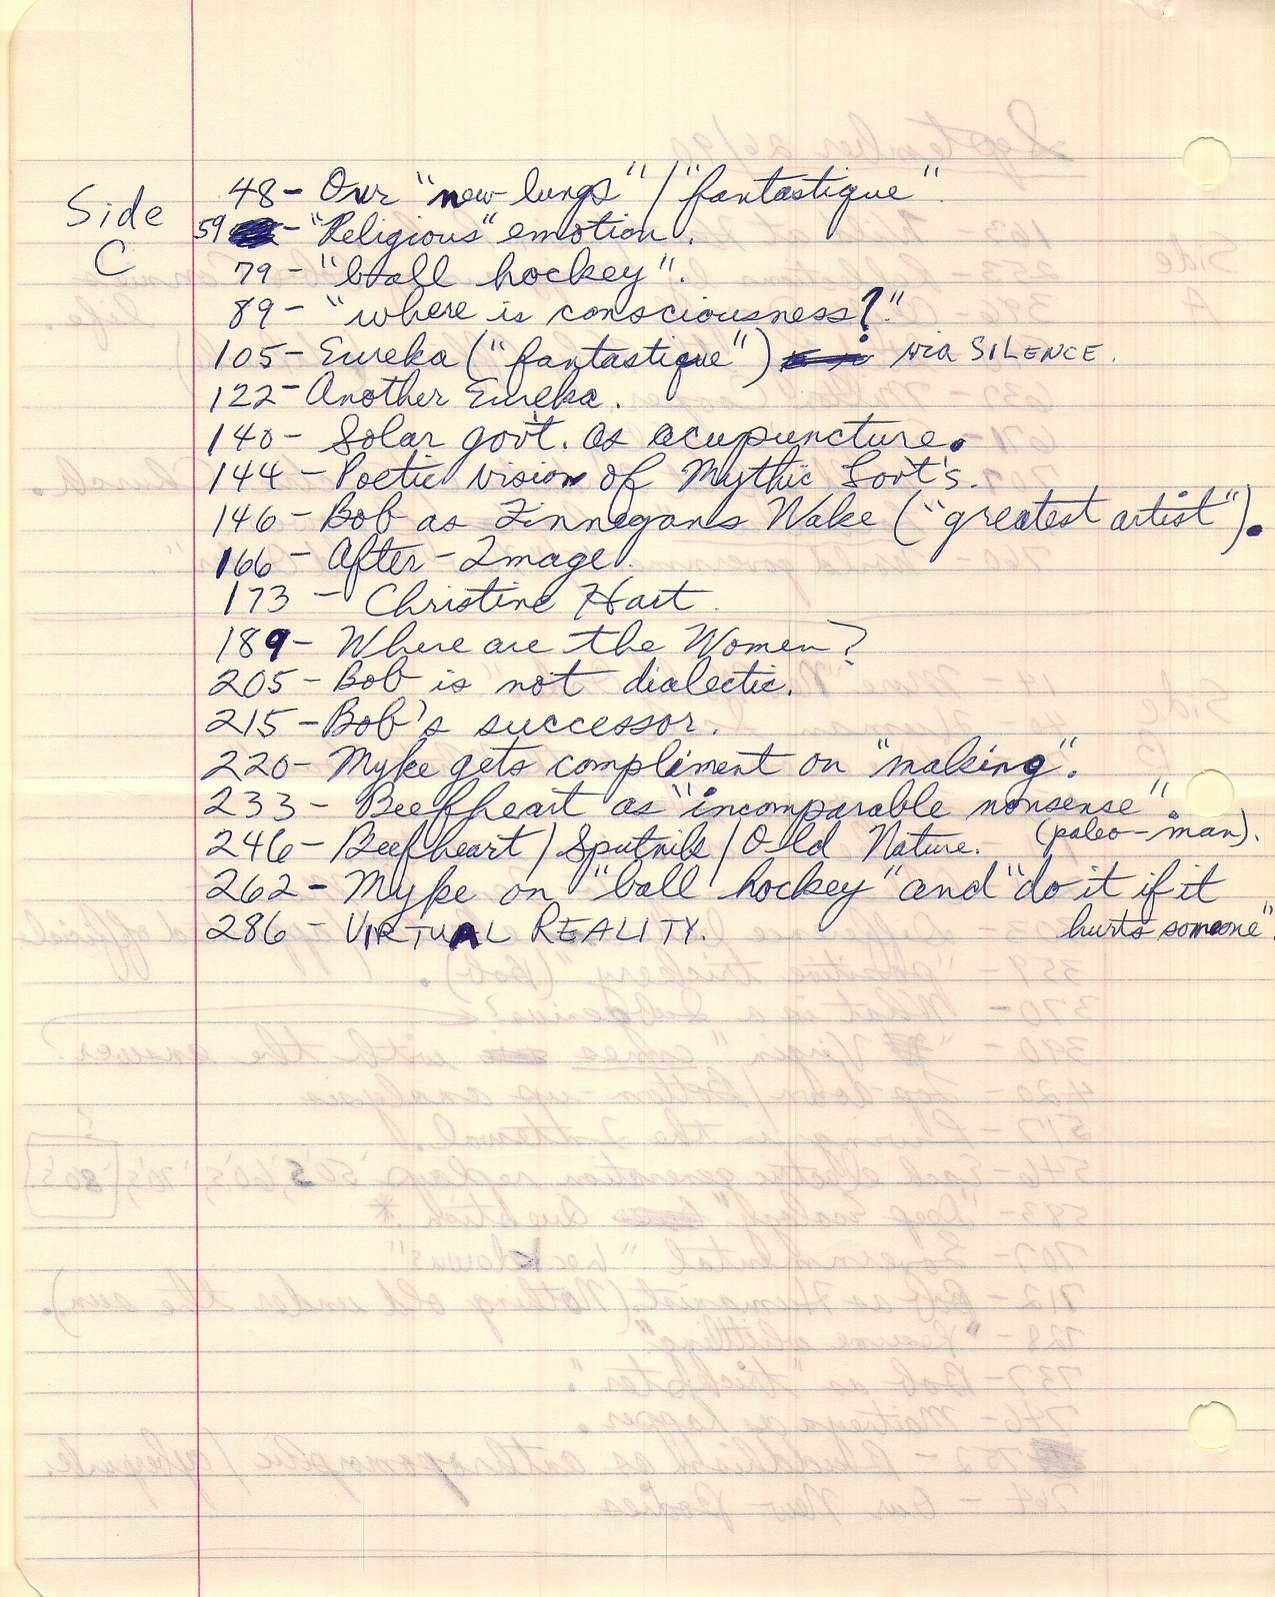 Side
C
48 - Our "new lungs" / "fantastique".
59 - "Religious" emotion.
79 - "ball hockey".
89 - "where is consciousness?"
105 - Eureka ("fantastique") via SILENCE.
122 - Another Eureka.
140 - Solar gov't. as acupuncture.
144 - Poetic vision of Mythic Gov't's.
146 - Bob as Finnegans Wake ("greatest artist").
166 - After-Image.
173 - Christine Hart.
189 - Where are the Women?
205 - Bob is not dialectic.
215 - Bob's successor.
220 - Myke gets compliment on "making".
233 - Beefheart as "incomparable nonsense".
246 - Beefheart / Sputnik / Old Nature. (paleo-man).
262 - Myke on "ball hockey" and "do it if it
hurts someone".
286 - VIRTUAL REALITY.